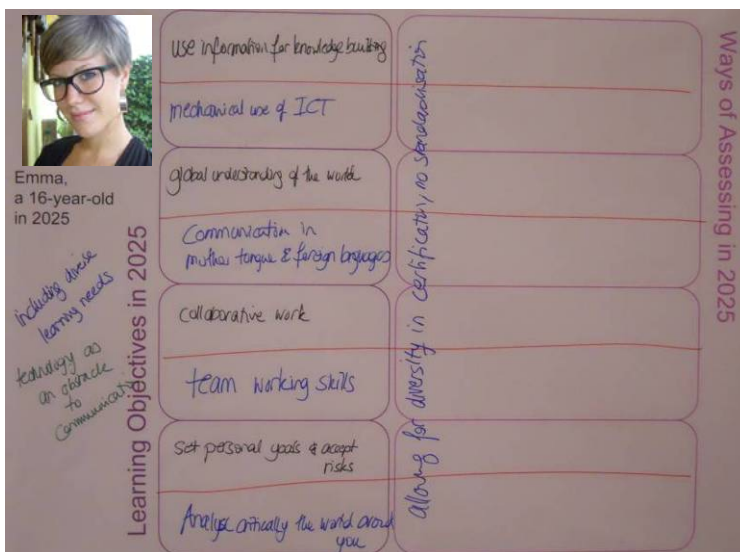 Emma,
a 16-year-old
in 2025
including diverse
learning needs
technology as
an obstacle
to
communication
Learning Objectives in 2025
use information for knowledge building
mechanical use of ICT
global understanding of the world
Communication in
mother tongue & foreign languages
collaborative work
team working skills
Set personal goals & accept
risks
Analyse critically the world around
you
allowing for diversity in certificating, no standardisation
Ways of Assessing in 2025